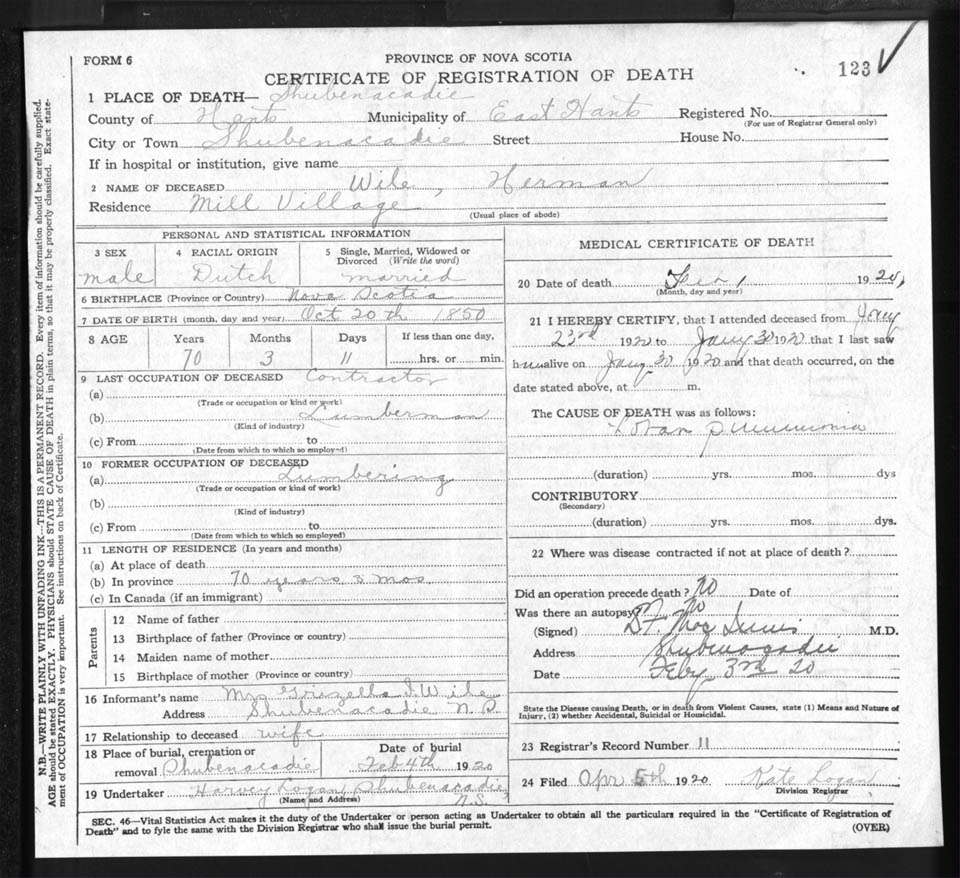 FORM 6
PROVINCE OF NOVA SCOTIA
123
CERTIFICATE OF REGISTRATION OF DEATH
1 PLACE OF DEATH— Shubenacadie
County of Hants Municipality of East Hants Registered No.
(For use of Registrar General only)
City or Town Shubenacadie Street House No.
If in hospital or institution, give name
2 NAME OF DECEASED Wile, Herman
Residence Mill Village
(Usual place of abode)
PERSONAL AND STATISTICAL INFORMATION
3 SEX 4 RACIAL ORIGIN 5 Single, Married, Widowed or Divorced (Write the word)
male Dutch married
6 BIRTHPLACE (Province or Country) Nova Scotia
7 DATE OF BIRTH (month, day and year) Oct 20th 1850
8 AGE Years Months Days If less than one day,
70 3 11 hrs. or min.
9 LAST OCCUPATION OF DECEASED Contractor
(a)
(Trade or occupation or kind or work)
(b) Lumberman
(Kind of industry)
(c) From to
(Date from which to which so employed)
10 FORMER OCCUPATION OF DECEASED
(a) Lumbering
(Trade or occupation or kind of work)
(b)
(Kind of industry)
(c) From to
(Date from which to which so employed)
11 LENGTH OF RESIDENCE (In years and months)
(a) At place of death
(b) In province 70 years 3 mos
(c) In Canada (if an immigrant)
Parents
12 Name of father
13 Birthplace of father (Province or country)
14 Maiden name of mother
15 Birthplace of mother (Province or country)
16 Informant's name Mrs Grizella I Wile
Address Shubenacadie N.S.
17 Relationship to deceased wife
18 Place of burial, cremation or Date of burial
removal Shubenacadie Feb 4th 1920
19 Undertaker Harvey Logan, Shubenacadie
(Name and Address) N.S.
MEDICAL CERTIFICATE OF DEATH
20 Date of death Feb 1 1920,
(Month, day and year)
21 I HEREBY CERTIFY, that I attended deceased from
23rd 1920 to 30 1920 that I last saw
him alive on 30 1920 and that death occurred, on the
date stated above, at m.
The CAUSE OF DEATH was as follows:
Lobar pneumonia
(duration) yrs. mos. dys
CONTRIBUTORY
(Secondary)
(duration) yrs. mos. dys.
22 Where was disease contracted if not at place of death?
Did an operation precede death? No Date of
Was there an autopsy? No
(Signed) M.D.
Address Shubenacadie
Date Feby 3rd 20
State the Disease causing Death, or in death from Violent Causes, state (1) Means and Nature of
Injury, (2) whether Accidental, Suicidal or Homicidal.
23 Registrar's Record Number 11
24 Filed Apr 5th 1920 Kate Logan
Division Registrar
SEC. 46—Vital Statistics Act makes it the duty of the Undertaker or person acting as Undertaker to obtain all the particulars required in the "Certificate of Registration of
Death" and to fyle the same with the Division Registrar who shall issue the burial permit.
(OVER)
N.B.—WRITE PLAINLY WITH UNFADING INK—THIS IS A PERMANENT RECORD. Every item of information should be carefully supplied.
AGE should be stated EXACTLY. PHYSICIANS should STATE CAUSE OF DEATH in plain terms, so that it may be properly classified. Exact state-
ment of OCCUPATION is very important. See instructions on back of Certificate.